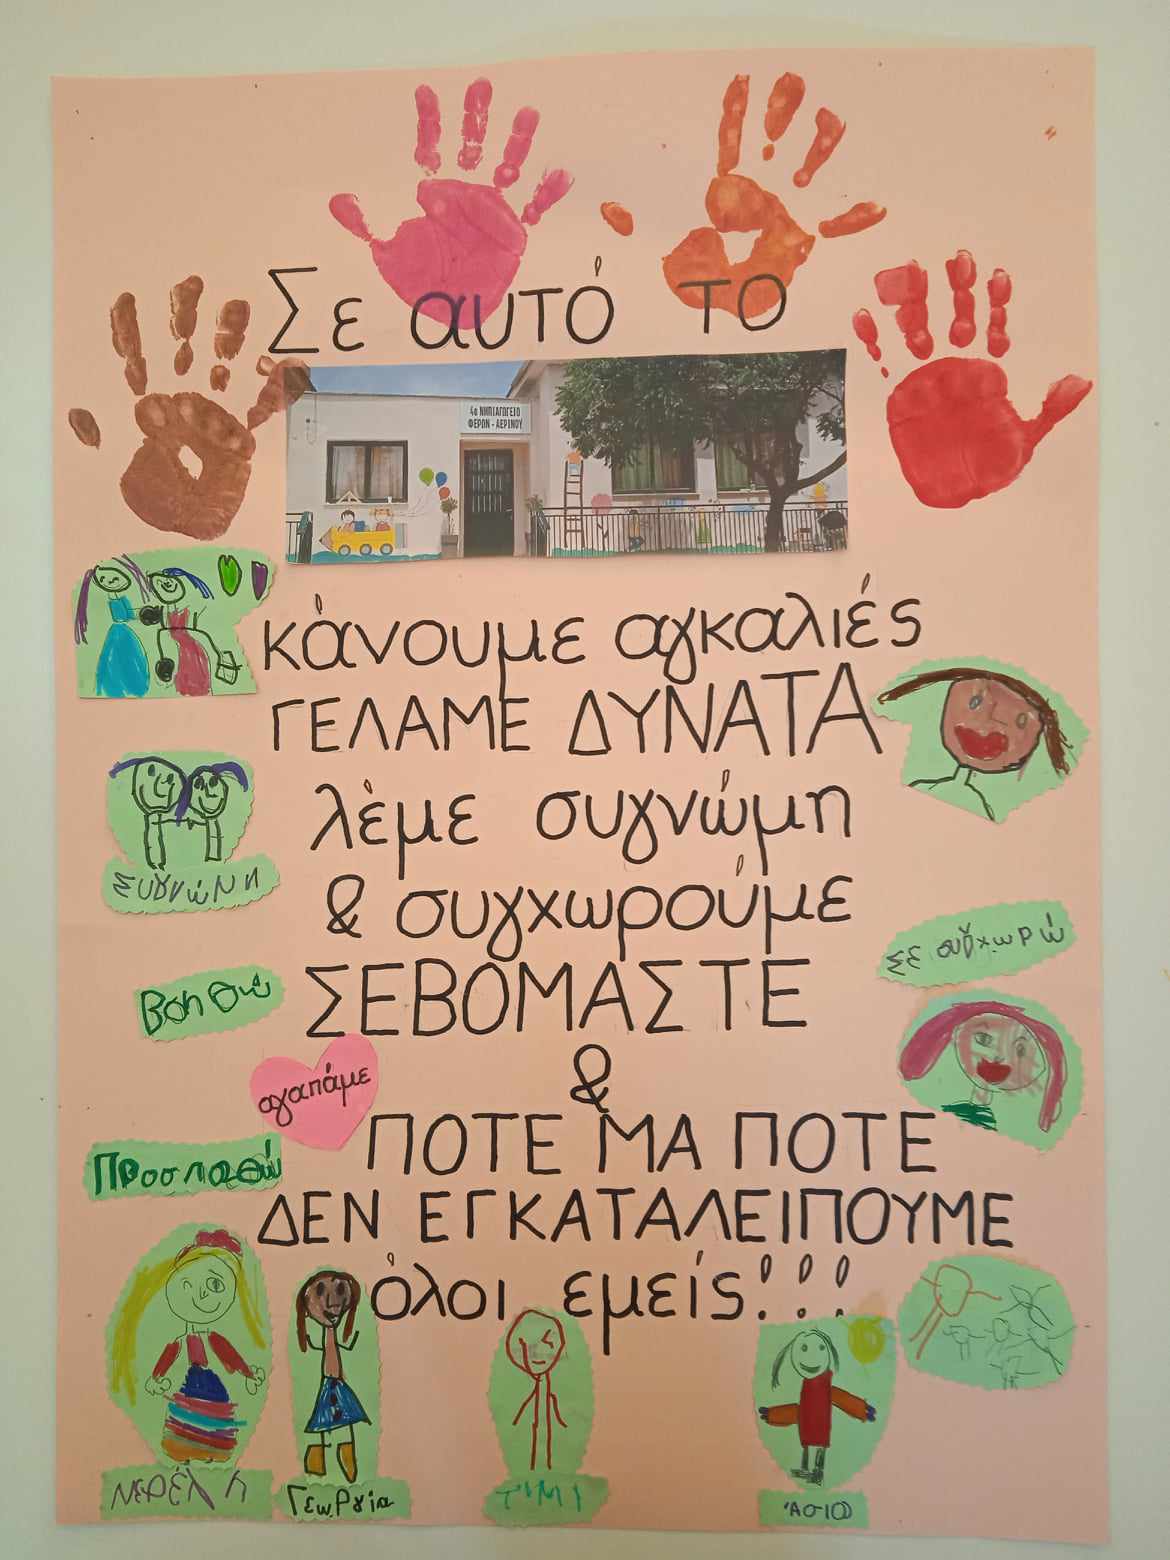 Σε αυτό το
4ο ΝΗΠΙΑΓΩΓΕΙΟ
ΦΕΡΩΝ - ΑΕΡΙΝΟΥ
κάνουμε αγκαλιές
ΓΕΛΑΜΕ ΔΥΝΑΤΑ
λέμε συγνώμη
& συγχωρούμε
Συγνώμη
Σε συγχωρώ
ΣΕΒΟΜΑΣΤΕ
Βοηθώ
&
αγαπάμε
ΠΟΤΕ ΜΑ ΠΟΤΕ
Προσπαθώ
ΔΕΝ ΕΓΚΑΤΑΛΕΙΠΟΥΜΕ
όλοι εμείς!!!
Νεφέλη
Γεωργία
ΤΙΜΙ